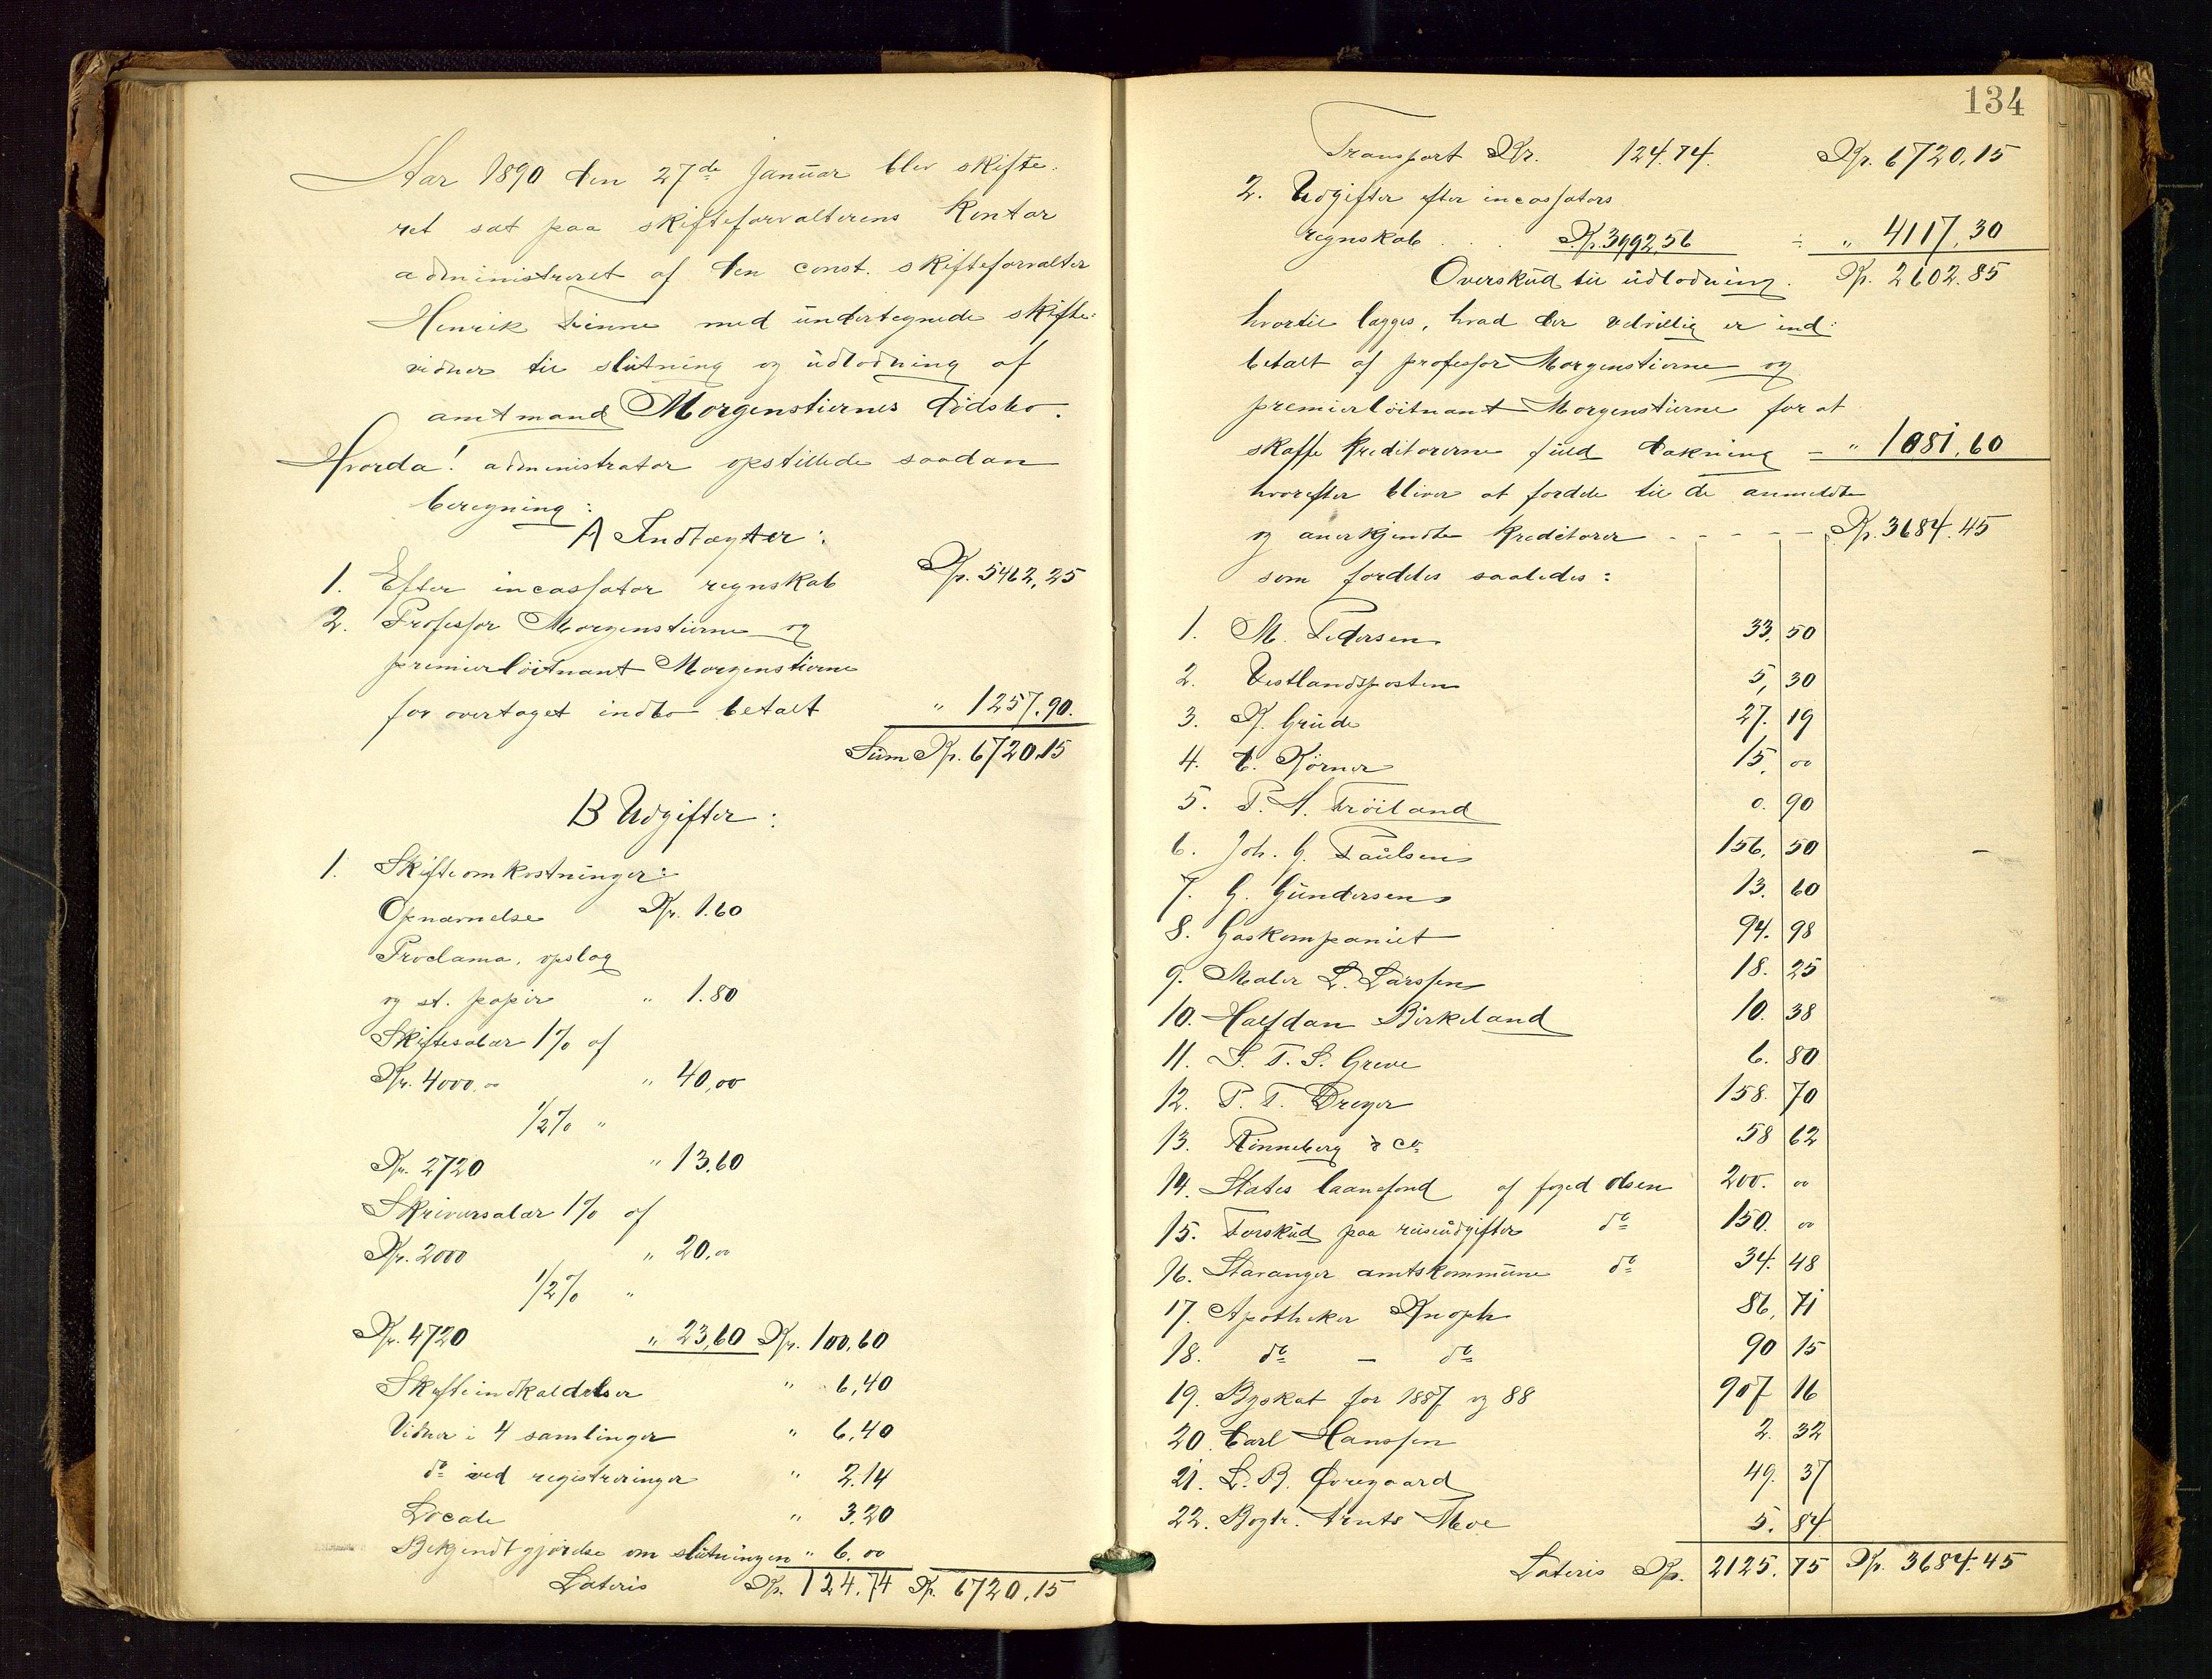 Aar 1890 den 27de Januar blev skifte-
ret sat paa skifteforvalterens kontor
administreret af den const. skifteforvalter
Henrik Finne med undertegnede skifte-
vidner til slutning og udlodning af
amtmand Morgenstiernes dødsbo.
Hvorda! administrator opstillede saadan
beregning:
A Indtægter:
1. Efter incassator regnskab Kr. 5462,25
2. Professor Morgenstierne og
premierløitnant Morgenstierne
for overtaget indbo betalt " 1257.90.
Sum Kr. 6720.15
B Udgifter:
1. Skifteomkostninger:
Opnævnelse Kr. 1.60
Proclama, opslag
og st. papir " 1.80
Skiftesalær 1% af
Kr. 4000.00 " 40,00
1/2% "
Kr. 2720 " 13.60
Skriversalær 1% af
Kr. 2000 " 20.00
1/2% "
Kr. 4720 " 23,60 Kr. 100,60
Skifteindkaldelser " 6,40
Vidner i 4 samlinger " 6,40
do ved registreringer " 2.14
Locale " 3.20
Bekjendtgjørelse om slutningen " 6.00
Lateris Kr. 124.74 Kr. 6720.15
134
Transport Kr. 124.74. Kr. 6720,15
2. Udgifter efter incassators
regnskab . . Kr. 3992,56 ÷ " 4117,30
Overskud til udlodning. Kr. 2602.85
hvortil lægges, hvad der velvillig er ind-
betalt af professor Morgenstierne og
premierløitnant Morgenstierne for at
skaffe kreditorerne fuld dækning – " 1081.60
hvorefter bliver at fordele til de anmeldte
og anerkjendte kreditorer - - - - Kr. 3684.45
som fordeles saaledes:
1. M. Pedersen 33. 50
2. Vestlandsposten 5, 30
3. K. Grude 27. 19
4. C. Körner 15. 00
5. P. A. Frøiland 0. 90
6. Joh. G. Paulsen 156, 50
7. G. Gundersen 13. 60
8. Gaskompaniet 94. 98
9. Maler L. Larssen 18. 25
10. Halfdan Birkeland 10. 38
11. S. T. S. Greve 6. 80
12. P. T. Dreyer 158. 70
13. Rinneberg & Co 58 62
14. States laanefond af foged Olsen 200. 00
15. Forskud paa reiseudgifter do 150. 00
16. Stavanger amtskommune do 34. 48
17. Apotheker Knoph 86, 71
18. do – do 90 15
19. Byskat for 1887 og 88 907 16
20. Carl Hanssen 2. 32
21. L. B. Øvregaard 49. 37
22. Bogtr. Arnts Moe 5. 84
Lateris Kr. 2125. 75 Kr. 3684.45